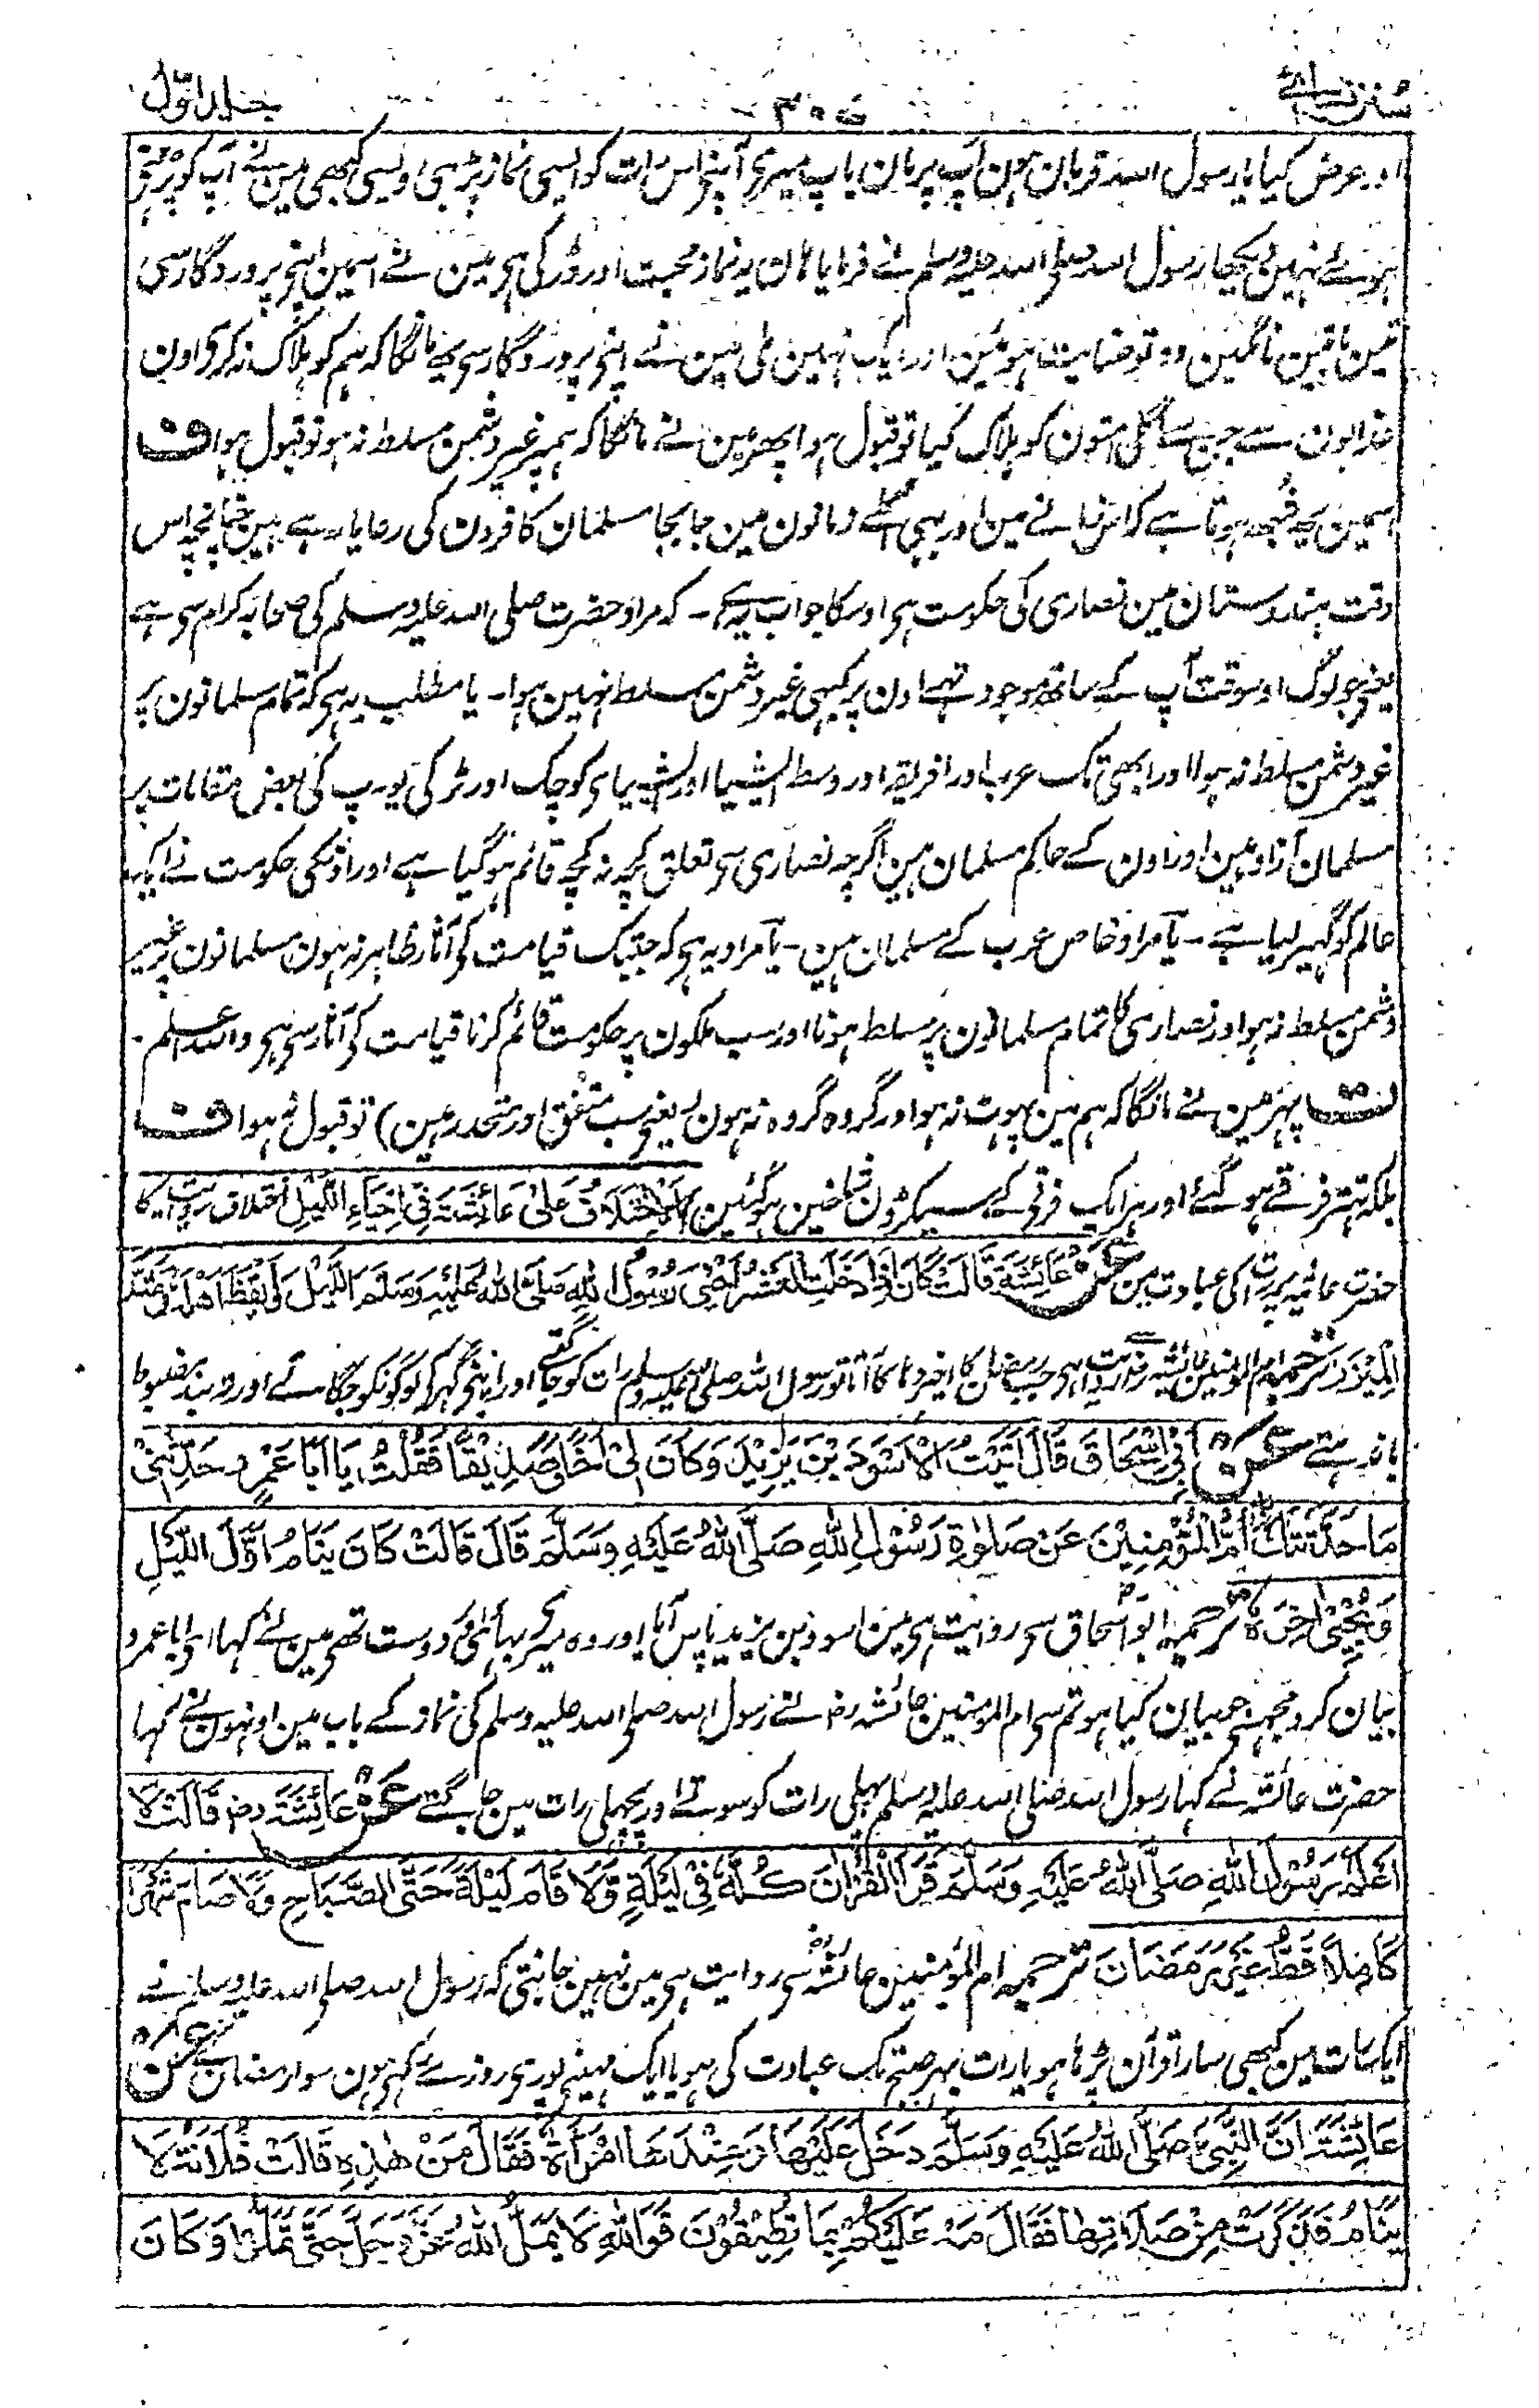 سُنن نسائے
جلد اوّل
اور عرض کیا یا رسول اللہ قربان ہون آپ پر مان باپ میرے آپنے اس رات کو ایسی نماز پڑہی ویسی کبھی مین نے آپ کو پڑہتے
ہوئے نہین دیکھا رسول اللہ صلی اللہ علیہ وسلم نے فرمایا ہان یہ نماز محبت اور ڈر کی ہے مین نے اسمین اپنے پروردگار سے
تین باتین مانگین دو تو عنایت ہوئین اور ایک نہین ملی مین نے اپنے پروردگار سے یہ مانگا کہ ہم کو ہلاک نہ کرے اون
عذابون سے جن سے اگلی امتون کو ہلاک کیا تو قبول ہوا پھر مین نے مانگا کہ ہمپر غیر دشمن مسلط نہ ہو تو قبول ہوا ف
اسمین یہ شُبھہ ہوتا ہے کہ اس زمانے مین اور بہی اگلے زمانون مین جا بجا مسلمان کافرون کی رعایا رہے ہین چنانچہ اس
وقت ہندوستان مین نصاری کی حکومت ہے اوسکا جواب یہ ہے۔ کہ مراد حضرت صلی اللہ علیہ وسلم کی صحابہ کرام سے ہے
یعنی جو لوگ اوسوقت آپ کے ساتھ موجود تہے اون پر کبہی غیر دشمن مسلط نہین ہوا۔ یا مطلب یہ ہے کہ تمام مسلمانون پر
غیر دشمن مسلط نہ ہوا اور ابھی تک عرب اور افریقہ اور وسط ایشیا اور ایشیای کوچک اور ٹرکی یورپ کی بعض مقامات پر
مسلمان آزاد ہین اور اون کے حاکم مسلمان ہین اگرچہ نصاری سے تعلق کچہ نہ کچہ قائم ہو گیا ہے اور اونکی حکومت نے ایک
عالم کو گہیر لیا ہے۔ یا مراد خاص عرب کے مسلمان ہین۔ یا مراد یہ ہے کہ جبتک قیامت کی آثار ظاہر نہ ہون مسلمانون پر غیر
دشمن مسلط نہ ہو اور نصاری کا تمام مسلمانون پر مسلط ہونا اور سب ملکون پر حکومت قائم کرنا قیامت کی آثار سے ہے واللہ اعلم۔
ت پہر مین نے مانگا کہ ہم مین پہوٹ نہ ہو اور گروہ گروہ نہ ہون (یعنے سب متفق اور متحد رہین) تو قبول نہ ہوا ف
بلکہ تہتر فرقے ہو گئے اور ہر ایک فرقے کے سیکڑون شاخین ہو گئین اَلْاِخْتِلَافُ عَلٰی عَائِشَةَ فِیْ اِحْیَاءِ اللَّیْلِ اختلاف
حضرت عائشہ پر کی عبادت مین عَنْ عَائِشَةَ قَالَتْ كَانَ اِذَا دَخَلَتِ الْعَشْرُ اَحْیٰ رَسُوْلُ اللهِ صَلَّی اللهُ عَلَیْهِ وَسَلَّمَ اللَّیْلَ وَاَیْقَظَ اَهْلَهٗ وَشَدَّ
الْمِیْزَرَ ترجمہ ام المومنین عائشہ سے روایت ہے جب رمضان کا اخیر دہا آتا تو رسول اللہ صلی اللہ علیہ وسلم رات کو جاگتے اور اپنے گہر کے لوگونکو جگاتے اور تہ بند مضبوط
باندہتے عَنْ اَبِیْ اِسْحَاقَ قَالَ اَتَیْتُ الْاَسْوَدَ بْنَ یَزِیْدَ وَكَانَ لِیْ اَخًا صَدِیْقًا فَقُلْتُ یَا اَبَا عَمْرٍو حَدِّثْنِیْ
مَا حَدَّثَتْكَ اُمُّ الْمُؤْمِنِیْنَ عَنْ صَلٰوةِ رَسُوْلِ اللهِ صَلَّی اللهُ عَلَیْهِ وَسَلَّمَ قَالَ قَالَتْ كَانَ یَنَامُ اَوَّلَ اللَّیْلِ
وَیُحْیِیْ اٰخِرَهٗ ترجمہ ابو اسحاق سے روایت ہے مین اسود بن یزید پاس آیا اور وہ میرے بہائی دوست تھے مین نے کہا ای ابا عمرو
بیان کرو مجہسے جو بیان کیا ہو تم سے ام المومنین عائشہ رض نے رسول اللہ صلی اللہ علیہ وسلم کی نماز کے باب مین اونہون نے کہا
حضرت عائشہ نے کہا رسول اللہ صلی اللہ علیہ وسلم پہلی رات کو سوتے اور پچھلی رات مین جاگتے عَنْ عَائِشَةَ رض قَالَتْ لَا
اَعْلَمُ رَسُوْلَ اللهِ صَلَّی اللهُ عَلَیْهِ وَسَلَّمَ قَرَاَ الْقُرْاٰنَ كُلَّهٗ فِیْ لَیْلَةٍ وَّلَا قَامَ لَیْلَةً حَتَّی الصَّبَاحِ وَلَا صَامَ شَهْرًا
كَامِلًا قَطُّ غَیْرَ رَمَضَانَ ترجمہ ام المؤمنین عائشہ سے روایت ہے مین نہین جانتی کہ رسول اللہ صلی اللہ علیہ وسلم نے
ایک رات مین کبھی سارا قرآن پڑہا ہو یا رات بہر صبح تک عبادت کی ہو یا ایک مہینے پوری روزے رکہے ہون سوا رمضان کے عَنْ
عَائِشَةَ اَنَّ النَّبِیَّ صَلَّی اللهُ عَلَیْهِ وَسَلَّمَ دَخَلَ عَلَیْهَا وَعِنْدَهَا امْرَاَةٌ فَقَالَ مَنْ هٰذِهٖ قَالَتْ فُلَانَةُ لَا
یَنَامُ فَذَكَرَتْ مِنْ صَلَاتِهَا فَقَالَ مَهْ عَلَیْكُمْ بِمَا تُطِیْقُوْنَ فَوَاللهِ لَا یَمَلُّ اللهُ عَزَّ وَجَلَّ حَتّٰی تَمَلُّوْا وَكَانَ